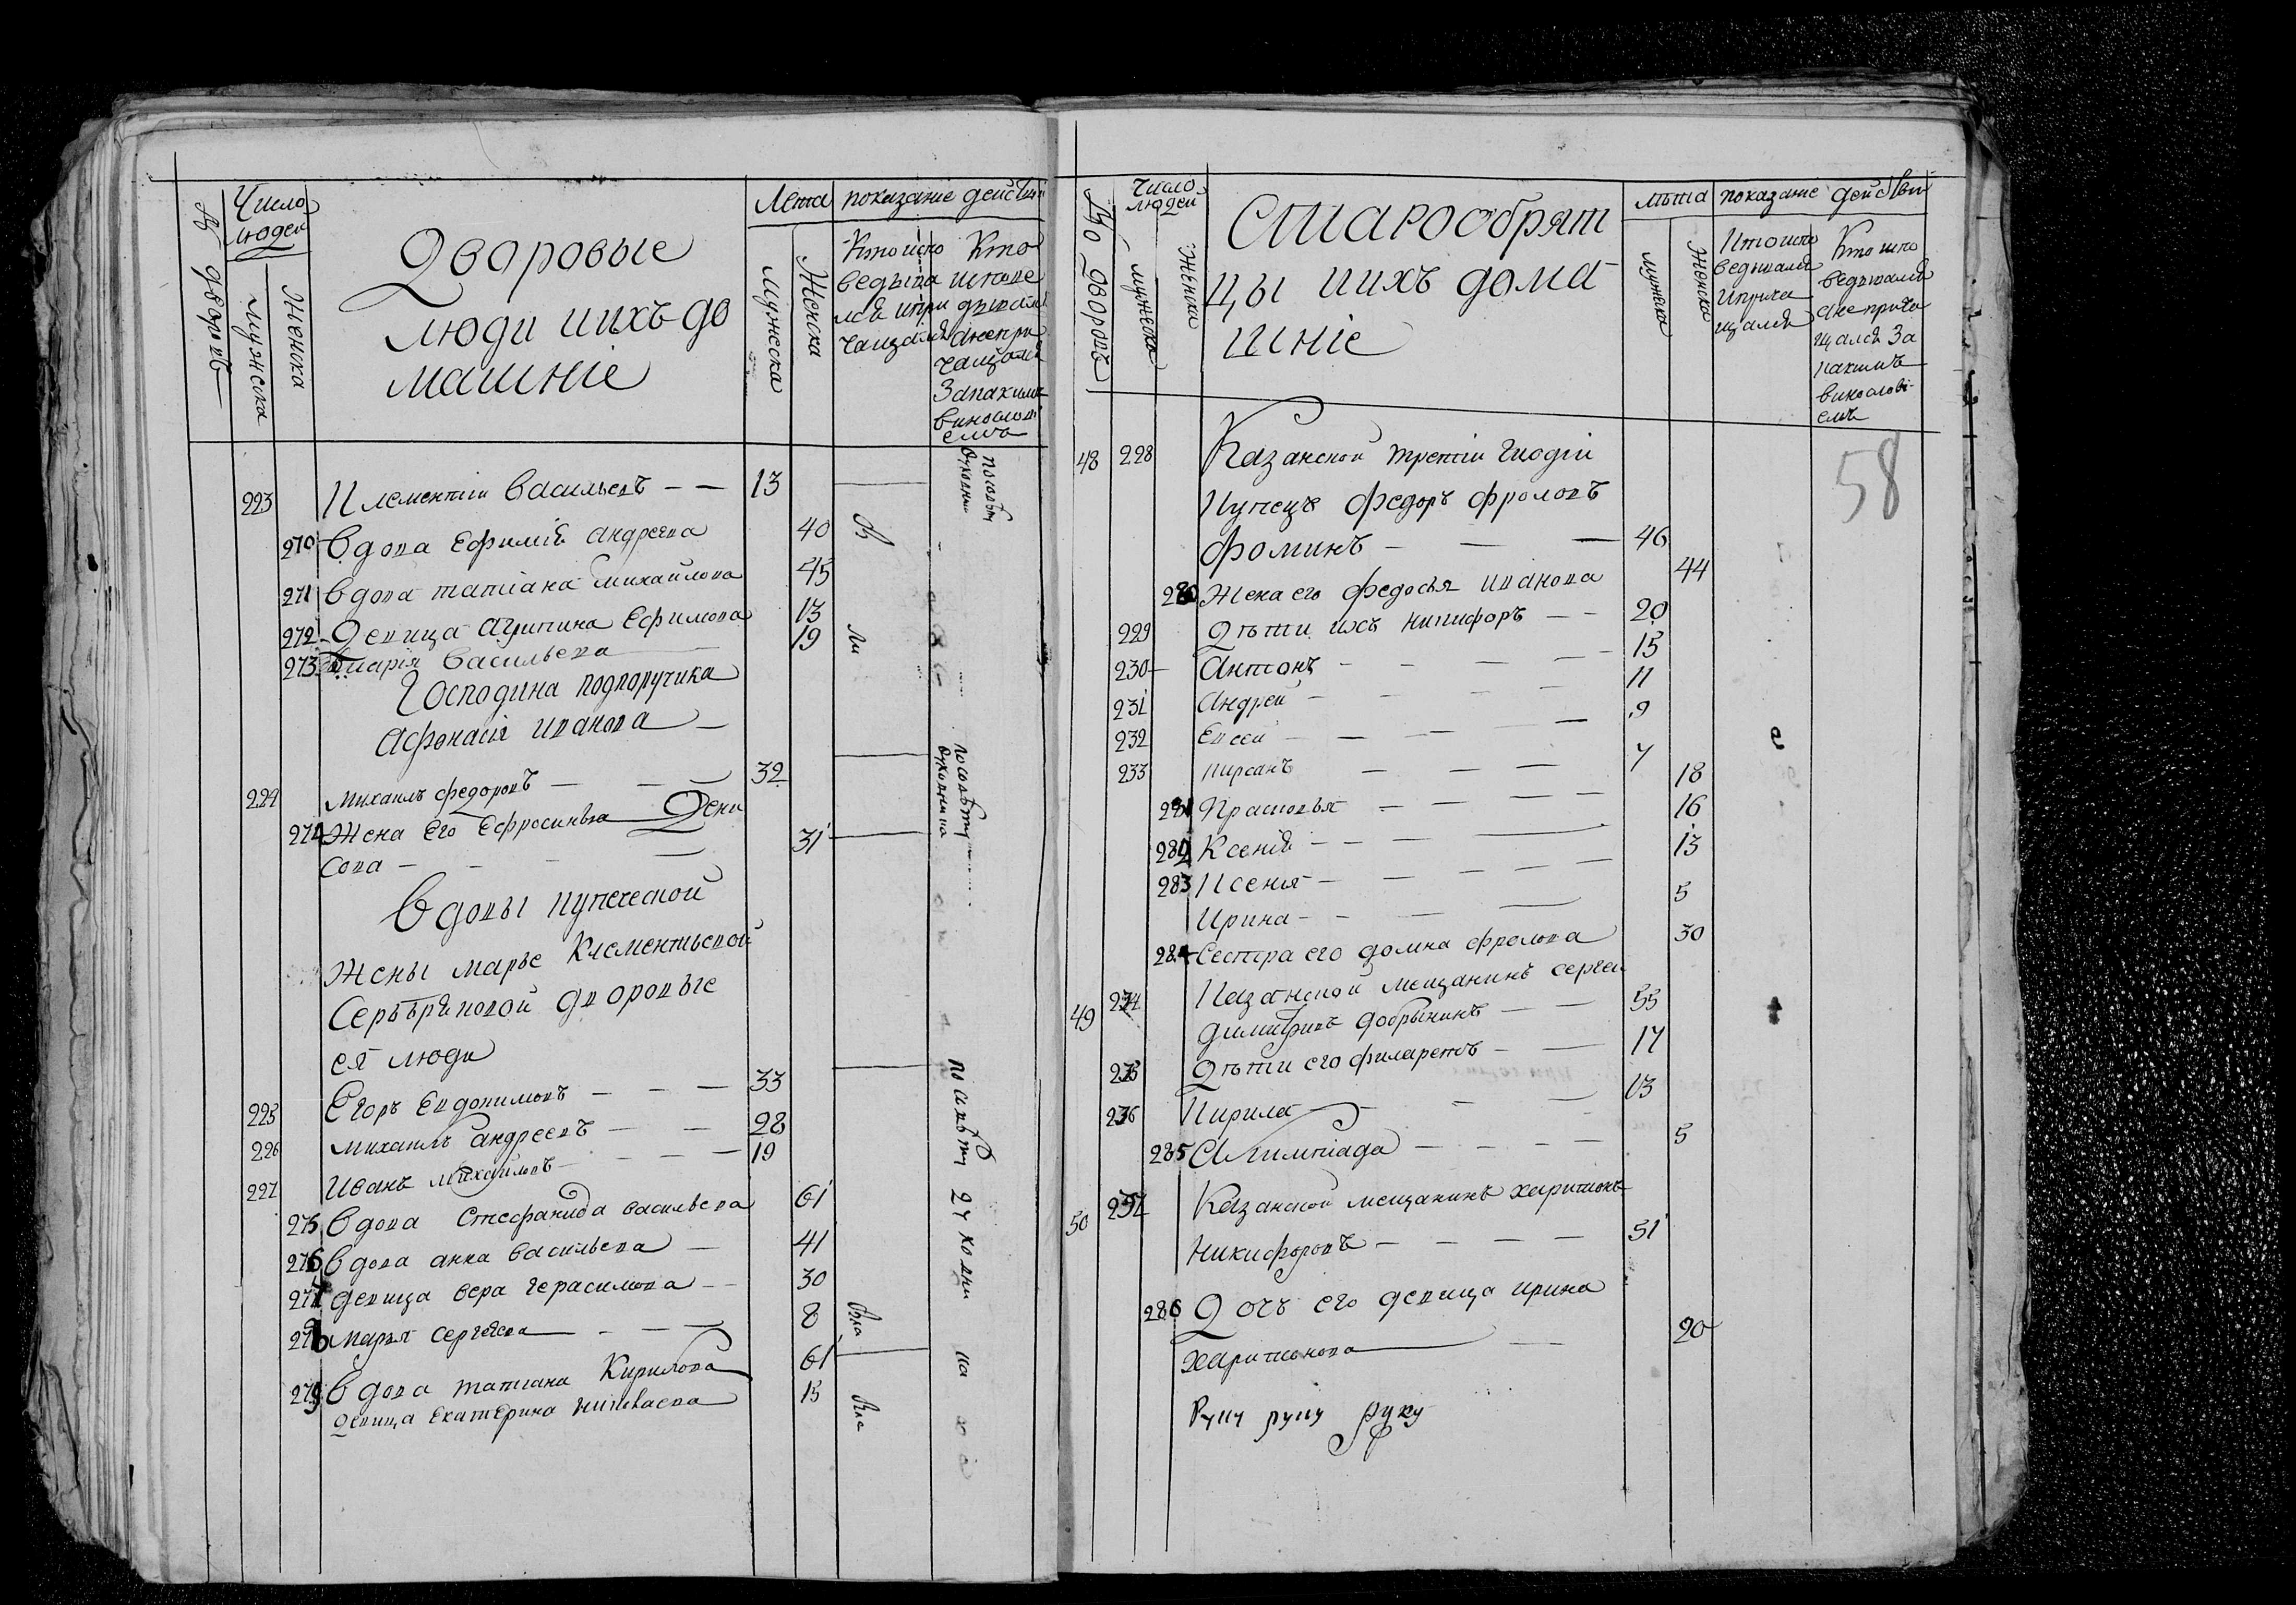 Число людей
Дворовые
люди иихъ до
машніе
Лета
показание действи
Мужеска
Женска
Кто испо
ведыва
лся ипри
чащался
Кто
испове
дывалс
анепри
чащался
За каким
винослов
емъ
223 Клементіи Васильевъ 13
270 Вдова Ефимія андреева 40
271 Вдова татіана михаилова 45
272 Девица агрипина Ефимова 13
273 Марія Васильева 19
Господина подпоручика
Афонасія иванова
224 Михаилъ федоровъ 32
274 Жена Его Ефросинья Дени
сова 31
Вдовы купеческой
Жены марье Клементьевой
Серебряковой дворовые
ея люди
225 Егоръ Евдокимовъ 33
226 Михаилъ андреевъ 28
227 Иванъ михайловъ 19
275 Вдова Стефанида васильева 61
276 Вдова анна васильева 41
277 девица вера герасимова 30
278 Марья сергеева 8
279 Вдова татиана Кирилова 61
девица екатерина николаева 15
Число людей
Старообрят
цы иихъ дома
шніе
лета
показаніе действи
мужеска
женска
Кто испо
ведывалс
Иприча
щался
Кто испо
ведывался
анеприча
щался За
каким
винослові
емъ
58
48 228 Казанской третіи гилдіи
Купецъ федоръ фроловъ
фоминъ 46
280 Жена его федосья иванова 44
229 Дѣти ихъ никифоръ 20
230 Антонъ 15
231 Андреи 11
232 Евсеи 9
233 Кирсанъ 7
281 Прасковья 18
282 Ксенія 16
283 Ксенія 13
Ирина 5
284 Сестра его домна фролова 30
49 234 Казанской мещанинъ сергеи
димитриевъ добрынинъ 55
235 Дѣти его филаретъ 17
236 Кирила 13
285 Алимпіада 5
50 237 Казанской мещанинъ харитонъ
Никифоровъ 51
286 Дочь его девица ирина
харитонова 20
Руку руку руку